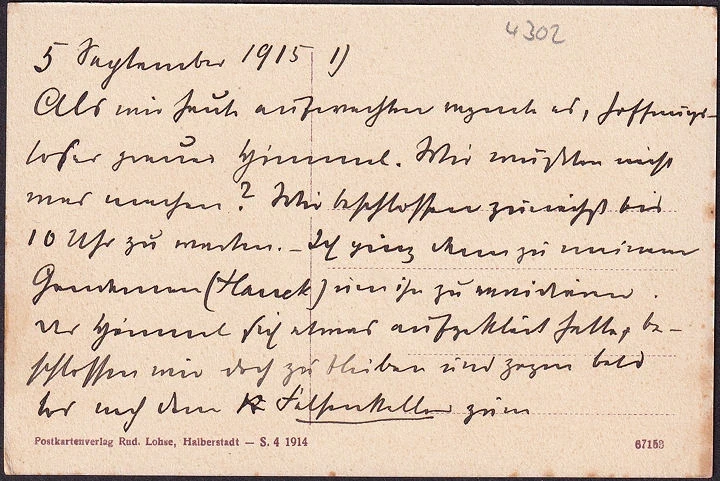 4302
5 September 1915 1)
Als wir heute aufwachten regnete es, hoffnungs-
loser grauer Himmel. Wir wußten nicht
was machen? Wir beschlossen zunächst bis
10 Uhr zu warten. – Ich ging dann zu meinem
(Hauck) um ihn zu
der Himmel sich etwas aufgeklärt hatte, be-
schlossen wir doch zu bleiben und zogen bald
los nach dem Felsenkeller zum
Postkartenverlag Rud. Lohse, Halberstadt — S. 4 1914
67153